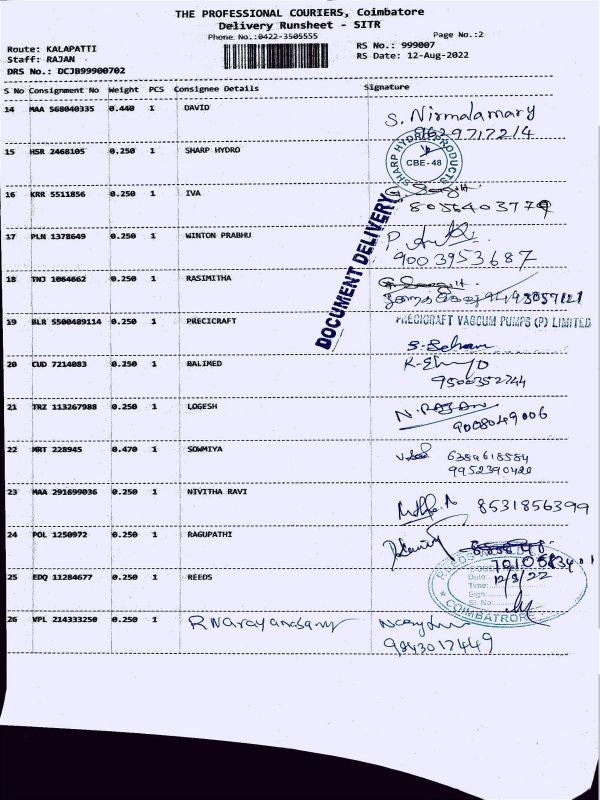 THE PROFESSIONAL COURIERS, Coimbatore
Delivery Runsheet - SITR
Phone No.:0422-3505555
Page No.:2
Route: KALAPATTI
RS No.: 999007
Staff: RAJAN
RS Date: 12-Aug-2022
DRS No.: DCJB99900702
S No Consignment No Weight PCS Consignee Details Signature
14 MAA 568040335 0.440 1 DAVID S. Nirmalamary
9629717214
15 HSR 2468105 0.250 1 SHARP HYDRO SHARP HYDRO PRODUCTS CBE-48
16 KRR 5511856 0.250 1 IVA
8056403779
17 PLN 1378649 0.250 1 WINTON PRABHU P
9003953687
DOCUMENT DELIVERY
18 TNJ 1064662 0.250 1 RASIMITHA
19 BLR 5500489114 0.250 1 PRECICRAFT PRECICRAFT VACUUM PUMPS (P) LIMITED
20 CUD 7214083 0.250 1 BALIMED
9500352744
21 TRZ 113267988 0.250 1 LOGESH N. RAJAN
9008049006
22 MRT 228945 0.470 1 SOWMIYA 6384618584
9952390420
23 MAA 291699036 0.250 1 NIVITHA RAVI 8531856399
24 POL 1250972 0.250 1 RAGUPATHI
25 EDQ 11284677 0.250 1 REEDS
Date: 12/8/22
Time:
Sign:
Sl. No:
COIMBATRORE
26 VPL 214333250 0.250 1 R Narayanasamy
9843017449